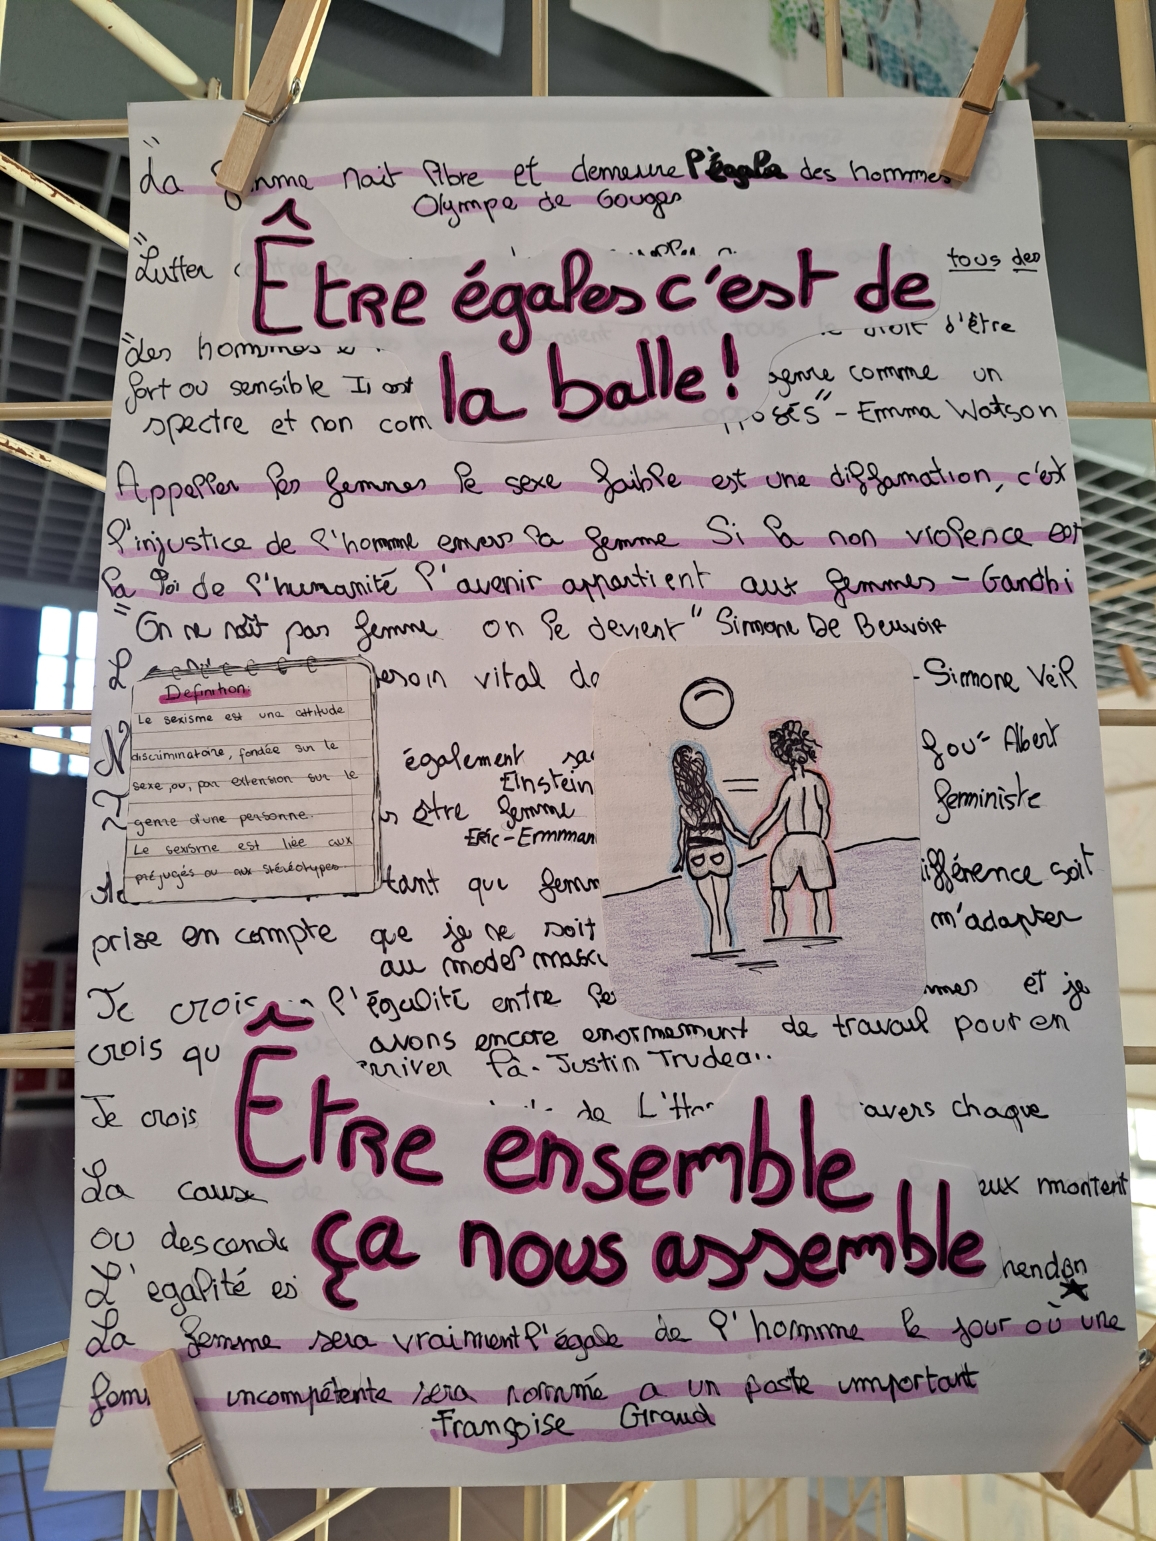 "La femme nait libre et demeure l'égale des hommes
Olympe de Gouges
"Lutter
tous des
Être égales c'est de
la balle !
"des hommes
droit d'être
fort ou sensible Il est
genre comme un
spectre et non com
pposés" - Emma Watson
Appeller les femmes le sexe faible est une diffamation, c'est
l'injustice de l'homme envers la femme Si la non violence est
la loi de l'humanité l'avenir appartient aux femmes - Gandhi
"On ne naît pas femme on le devient" Simone De Beuvoir
L
besoin vital de
- Simone Veil
Définition:
Le sexisme est une attitude
discriminatoire, fondée sur le
sexe, ou, par extension sur le
genre d'une personne.
Le sexisme est liée aux
préjugés ou aux stéréotypes
N
également
fou" Albert
Einstein
être femme
féministe
Eric-Emman
tant que femm
ifférence soit
prise en compte que je ne soit
m'adapter
au model mascu
=
Je crois l'égalité entre les
mmes et je
crois qu
avons encore enormement de travail pour en
arriver là. Justin Trudeau.
Je crois
de L'Ho
avers chaque
Être ensemble
ça nous assemble
La cause
eux montent
ou descende
L'egalité es
hendon
La femme sera vraiment l'égale de l'homme le jour où une
femme incompétente sera nommé a un poste important
Françoise Giroud